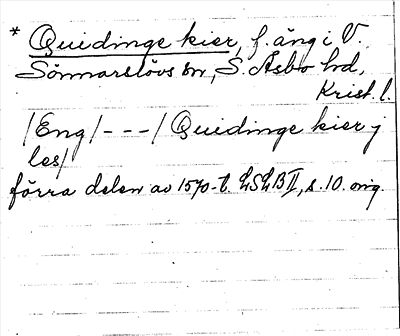 * Quidinge kier, f. äng i V.
Sönnarslövs sn, S. Åsbo hd,
Krist. l.
/Eng/---/ Quidinge kier j
les/
förra delen av 1570-t. LSLB II, s. 10. orig.